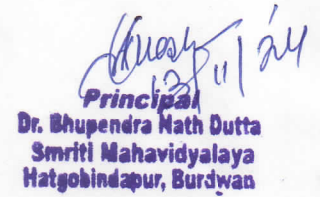 13/11/24
Principal
Dr. Bhupendra Nath Dutta
Smriti Mahavidyalaya
Hatgobindapur, Burdwan